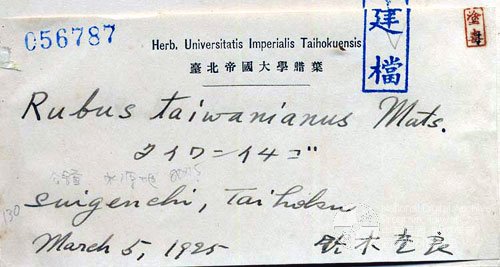 056787
建檔
Herb. Universitatis Imperialis Taihokuensis
臺北帝國大學腊葉
Rubus taiwanianus Mats.
タイワンイチゴ
suigenchi, Taihoku
130
March 5, 1925
鈴木重良